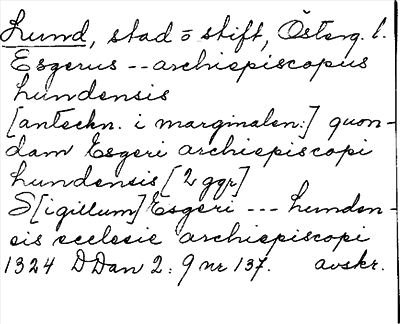 Lund, stad o stift, Österg. l.
Esgerus -- archiepiscopus
Lundensis
[anteckn. i marginalen:] quon-
dam Esgeri archiepiscopi
Lundensis [2 ggr]
S[igillum] Esgeri --- Lunden-
sis ecclesie archiepiscopi
1324 DDan 2:9 nr 137. avskr.